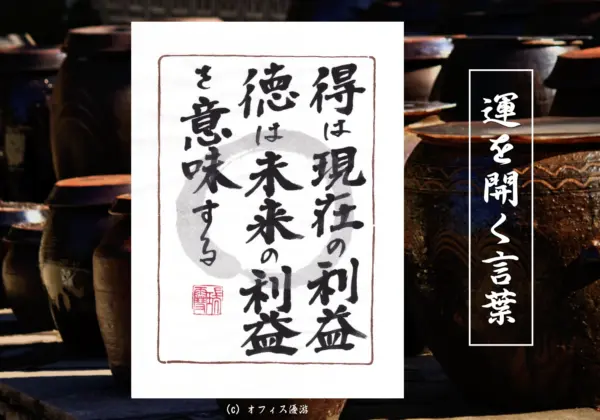 得は現在の利益
徳は未来の利益
を意味する
運を開く言葉
(C) オフィス優游